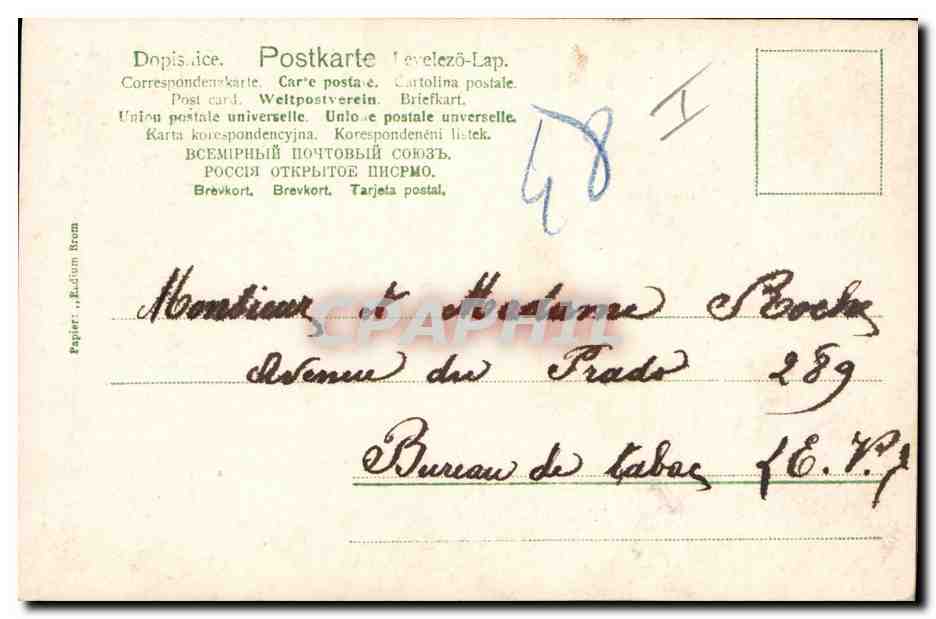 Dopisnice. Postkarte Levelező-Lap.
Correspondenzkarte. Carte postale. Cartolina postale.
Post card. Weltpostverein. Briefkart.
Union postale universelle. Unione postale unverselle.
Karta korespondencyjna. Korespondenčni listek.
ВСЕМІРНЫЙ ПОЧТОВЫЙ СОЮЗЪ.
РОССІЯ ОТКРЫТОЕ ПИСРМО.
Brevkort. Brevkort. Tarjeta postal.
48
I
Papier: „Radium Brom
Monsieur & Madame Roche
CPAPHIL
Avenue du Prado 289
Bureau de tabac (E. V.)